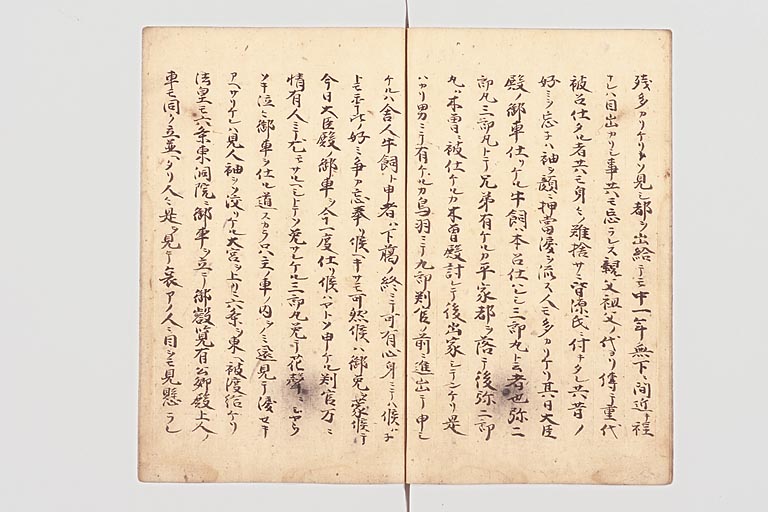 残多カリケリトソ見シ都ヲ出給テモ中一年無下ニ間近キ程
ナレハ目出カリシ事共モ忘ラレス親父祖父ノ代ヨリ傳テ重代
被召仕タル者共モ身ミノ難捨サニ皆源氏ニ付タレ共昔ノ
好ミヲ忘子ハ袖ヲ顔ニ押當涙ヲ流ス人モ多カリケリ其日大臣
殿ノ御車仕リケル牛飼ハ木召仕ハレシ三郎丸ト云者也弥二
郎丸三郎丸トテ兄弟有ケルカ平家都ヲ落テ後弥二郎
丸ハ木曽ニ被仕ケルカ木曽殿討レテ後出家シテンケリ是
ハカリ男ニテ有ケルカ鳥羽ニテ九郎判官ノ前ニ進出テ申シ
ケルハ舎人牛飼ト申者ハ下臈ノ終ニテ可有心身ニテハ候ハチ
トモ年比ノ好ミ争カ忘奉リ候ヘキサモ可然候ハ御免ヲ蒙候テ
今日大臣殿ノ御車ヲ今一度仕リ候ハヤトソ申ケル判官万ニ
情有人ニテ尤モサルヘシトテソ免サレケル三郎丸免テ花聲ニシヤウ
ソキ泣ミ御車ヲ仕ル道スカラ只主ノ車ノ内ヲノミ還見テ涙セキ
アヘサリケレハ見人袖ヲソ浸リケル大宮ヲ上リ六条ヲ東ヘ被渡給ケリ
法皇モ六条東洞院ニ御車ヲ立テ御覧有公卿殿上人ノ
車モ同ク立並ヘタリ人ミ是ヲ見テ哀アノ人ミ目ヲモ見懸ラレ